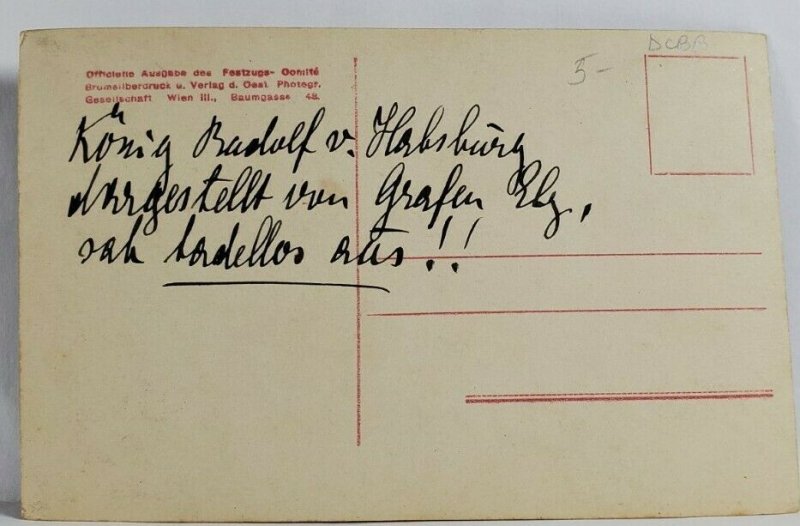 Officielle Ausgabe des Festzugs-Comité
Bromsilberdruck u. Verlag d. Oest. Photogr.
Gesellschaft Wien III., Baumgasse 48.
DCBB
5-
König Rudolf v. Habsburg
dargestellt von Grafen Elz,
sah tadellos aus!!